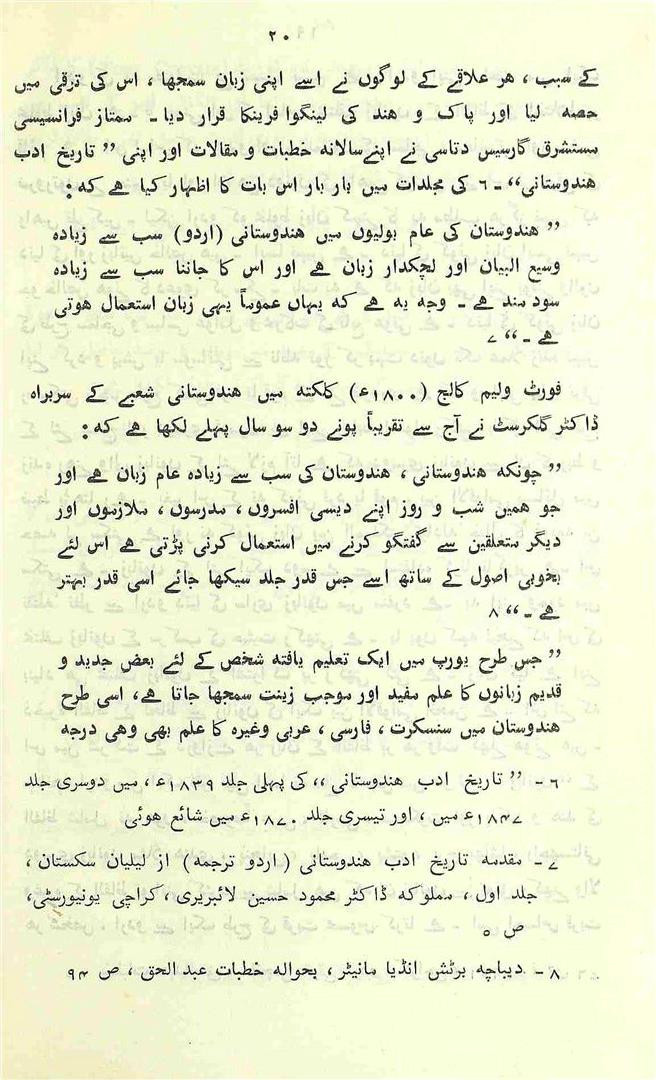 ۲۰
کے سبب ، هر علاقے کے لوگوں نے اسے اپنی زبان سمجھا ، اس کی ترقی میں
حصہ لیا اور پاک و هند کی لینگوا فرینکا قرار دیا ۔ ممتاز فرانسیسی
مستشرق گارسیں دتاسی نے اپنے سالانہ خطبات و مقالات اور اپنی ” تاریخ ادب
هندوستانی“ ۔ ۶ کی مجلدات میں بار بار اس بات کا اظہار کیا هے کہ :
” هندوستان کی عام بولیوں میں هندوستانی (اردو) سب سے زیادہ
وسیع البیان اور لچکدار زبان هے اور اس کا جاننا سب سے زیادہ
سود مند هے ۔ وجہ یہ هے کہ یہاں عموماً یہی زبان استعمال هوتی
هے ۔ “ ۷
فورٹ ولیم کالج (۱۸۰۰ء) کلکتہ میں هندوستانی شعبے کے سربراہ
ڈاکٹر گلکرسٹ نے آج سے تقریباً پونے دو سو سال پہلے لکھا هے کہ :
” چونکہ هندوستانی ، هندوستان کی سب سے زیادہ عام زبان هے اور
جو همیں شب و روز اپنے دیسی افسروں، مدرسوں، ملازموں اور
دیگر متعلقین سے گفتگو کرنے میں استعمال کرنی پڑتی هے اس لئے
بخوبی اصول کے ساتھ اسے جس قدر جلد سیکھا جائے اسی قدر بہتر
هے ۔ “ ۸
” جس طرح یورپ میں ایک تعلیم یافتہ شخص کے لئے بعض جدید و
قدیم زبانوں کا علم مفید اور موجب زینت سمجھا جاتا هے، اسی طرح
هندوستان میں سنسکرت ، فارسی ، عربی وغیرہ کا علم بھی وهی درجہ
۶ ۔ ” تاریخ ادب هندوستانی“ کی پہلی جلد ۱۸۳۹ء، میں دوسری جلد
۱۸۴۷ء میں ، اور تیسری جلد ۱۸۷۰ء میں شائع هوئی
۷ ۔ مقدمہ تاریخ ادب هندوستانی (اردو ترجمہ) از لیلیان سکستان ،
جلد اول ، مملوکہ ڈاکٹر محمود حسین لائبریری، کراچی یونیورسٹی،
ص ۵
۸ ۔ دیباچہ برٹش انڈیا مانیٹر، بحوالہ خطبات عبد الحق ، ص ۹۴